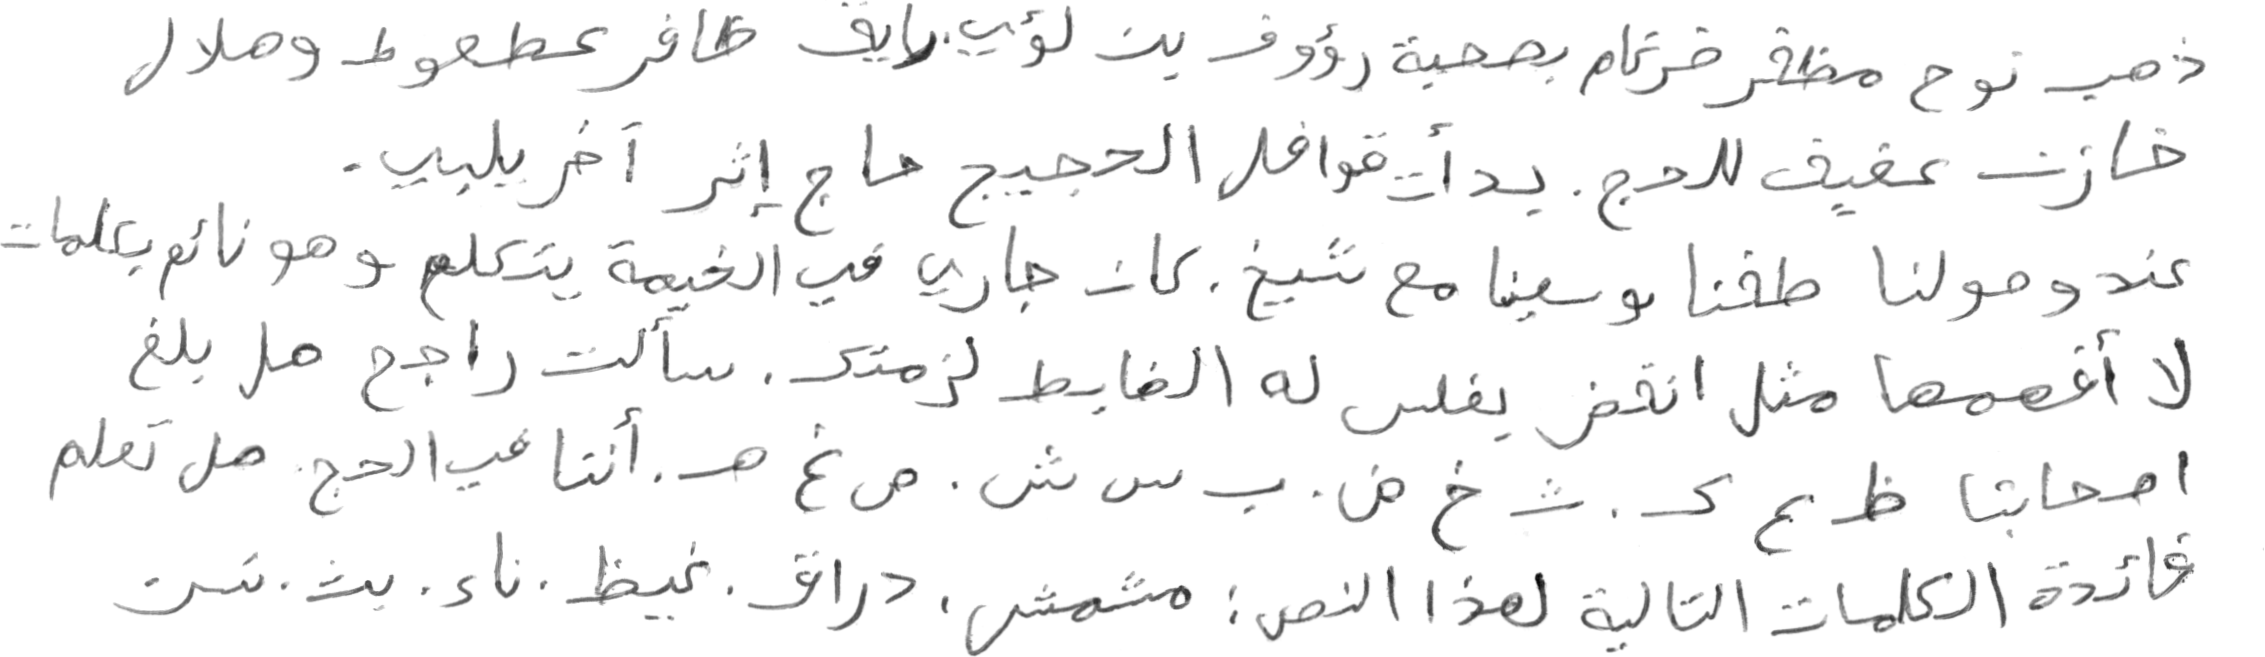 ذهب نوح مظفر ضرغام بصحبة رؤوف بن لؤي رايق ظافر عطعوط وهلال
خازن عفيف للحج. بدأت قوافل الحجيج حاج إثر آخر يلبي.
عند وصولنا طفنا وسعينا مع شيخ. كان جاري في الخيمة يتكلم وهو نائم بكلمات
لا أفهمها مثل انقض يفلس له الضابط لزمتك. سألت راجح هل بلغ
اصحابنا ظ ع ك. ث خ ض. ب س ش. ص غ هـ. أننا في الحج. هل تعلم
فائدة الكلمات التالية لهذا النص: مشمش، دراق. غيظ. ناء. بث. شن